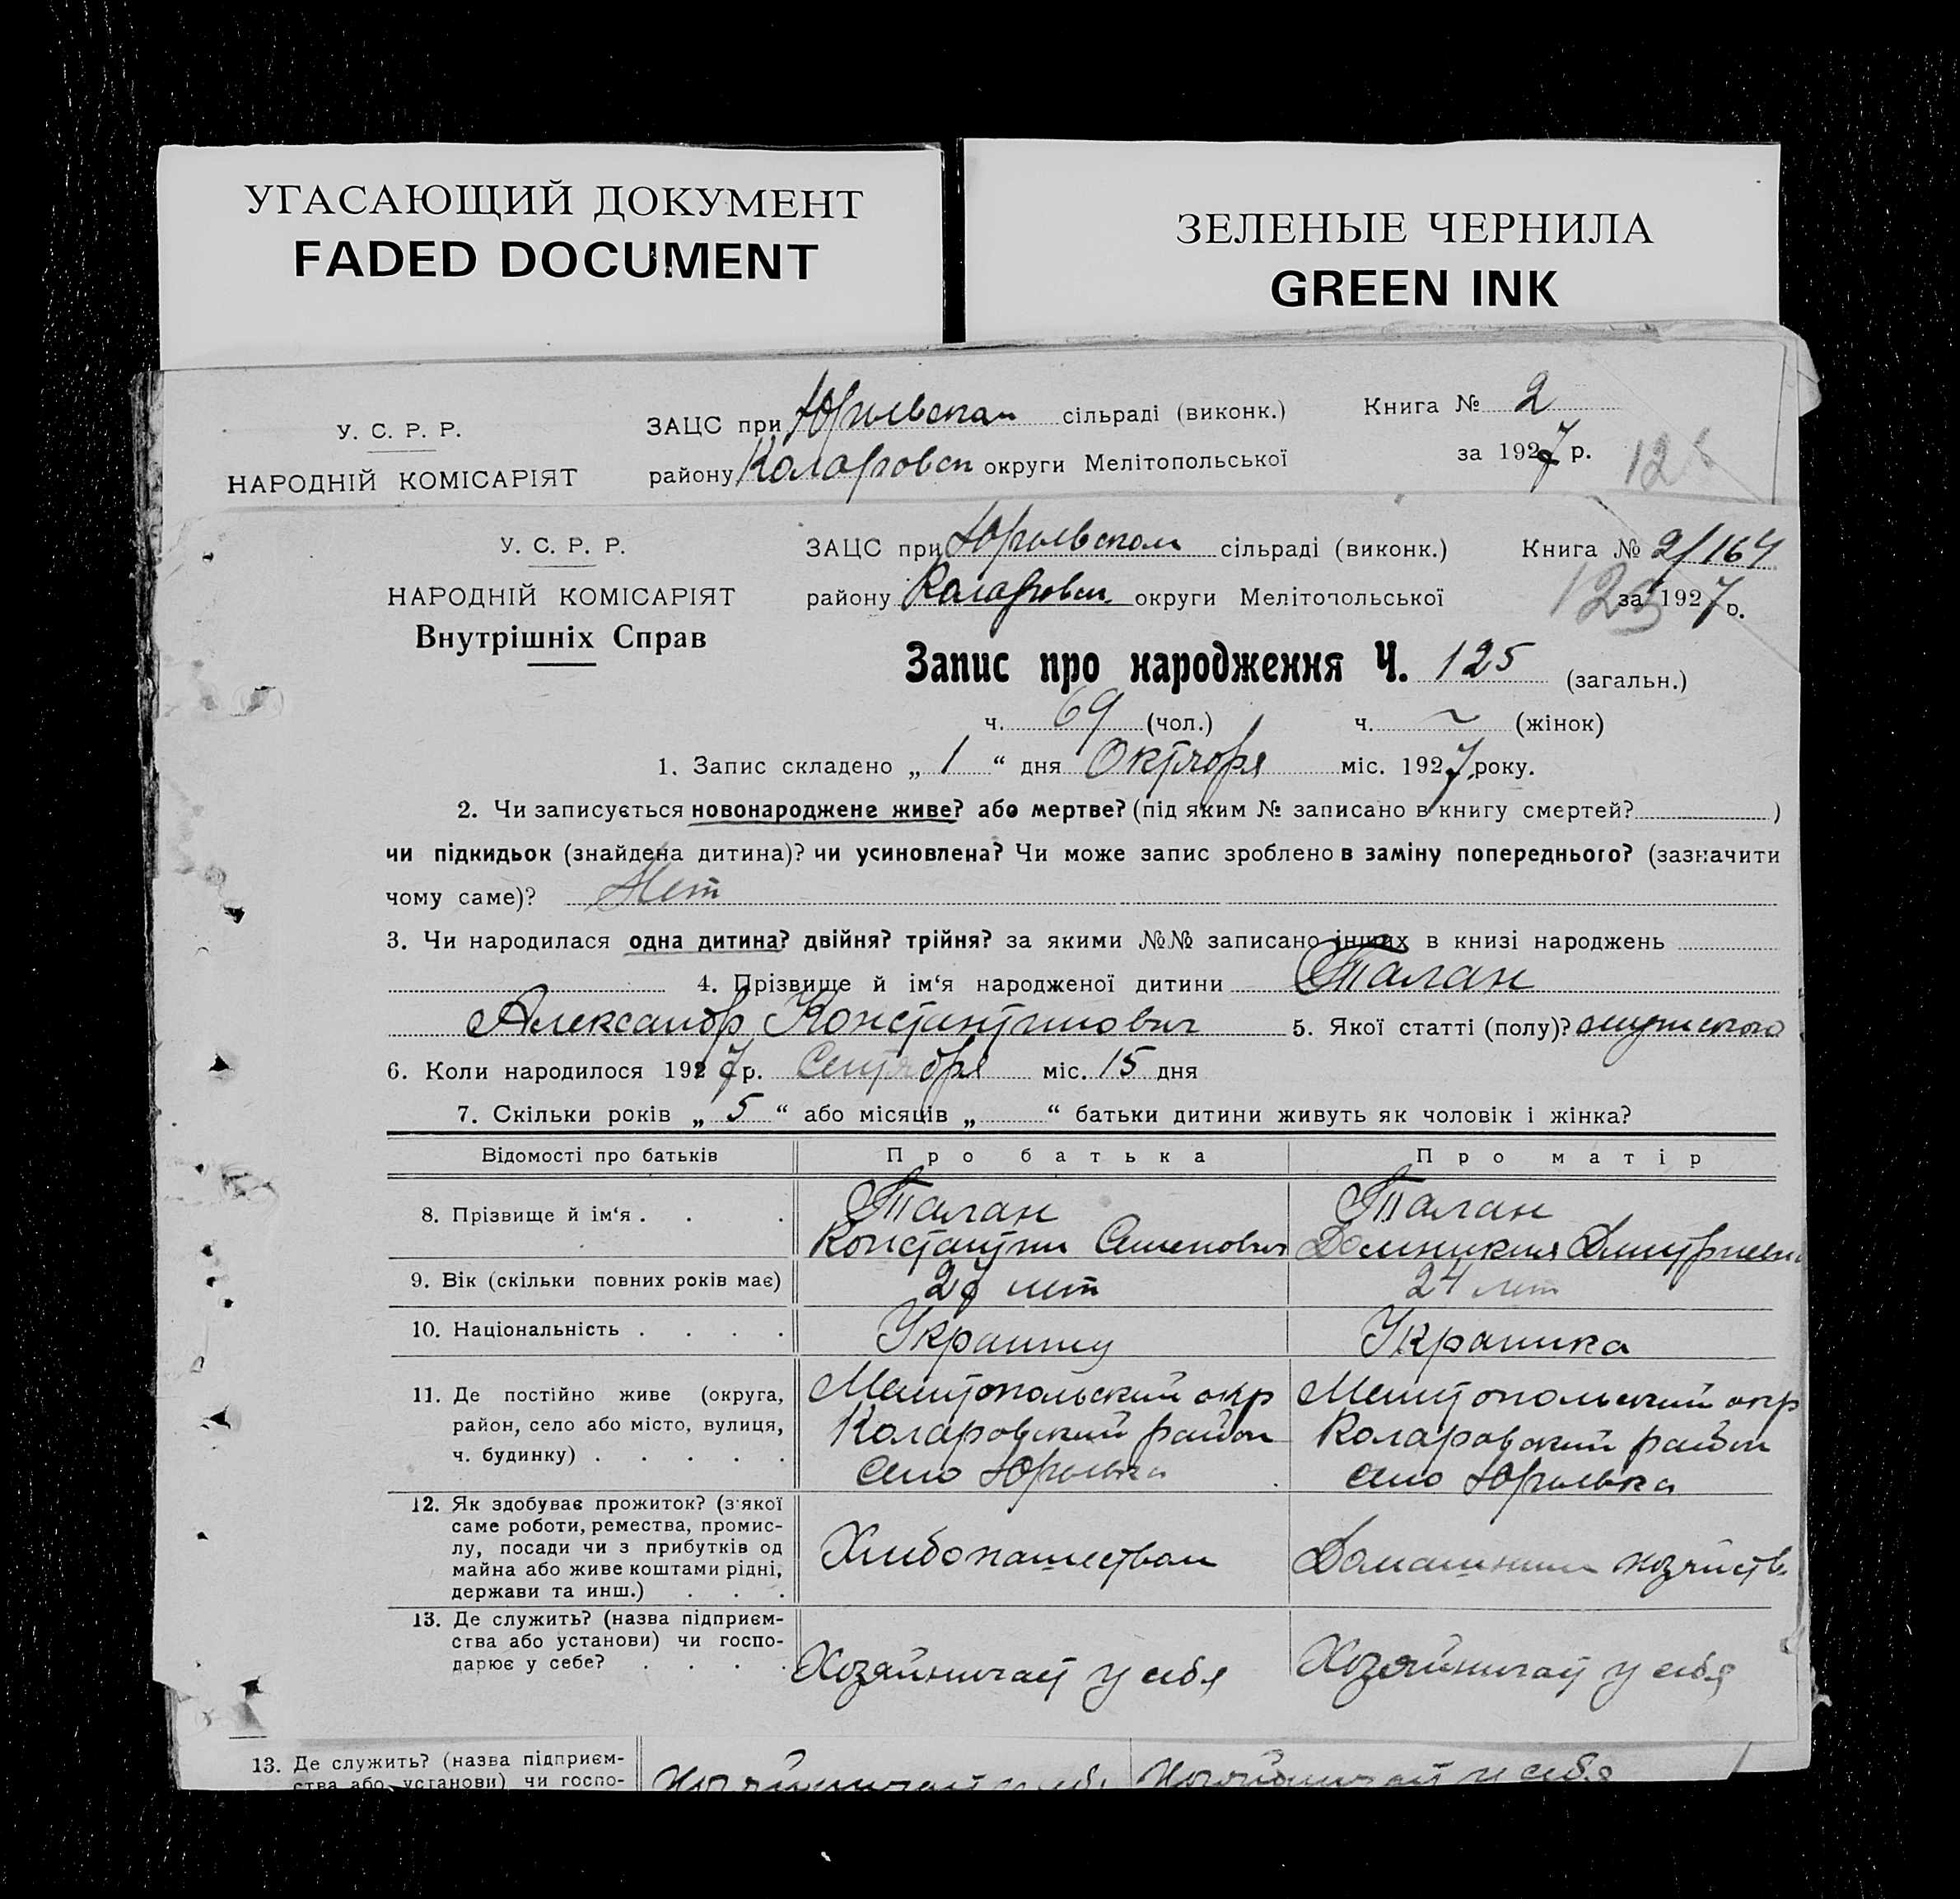 УГАСАЮЩИЙ ДОКУМЕНТ
FADED DOCUMENT
ЗЕЛЕНЫЕ ЧЕРНИЛА
GREEN INK
У. С. Р. Р.
НАРОДНІЙ КОМІСАРІЯТ
ЗАЦС при Юрьевском сільраді (виконк.)
району Коларовск округи Мелітопольської
Книга № 2
за 1927 р.
У. С. Р. Р.
НАРОДНІЙ КОМІСАРІЯТ
Внутрішніх Справ
ЗАЦС при Юрьевском сільраді (виконк.)
району Коларовск округи Мелітопольської
Книга № 2/164
за 1927 р.
Запис про народження Ч. 125 (загальн.)
ч. 69 (чол.) ч. ~ (жінок)
1. Запис складено „ 1 “ дня Октября міс. 1927 року.
2. Чи записується новонароджене живе? або мертве? (під яким № записано в книгу смертей? )
чи підкидьок (знайдена дитина)? чи усиновлена? Чи може запис зроблено в заміну попереднього? (зазначити
чому саме)? Нет
3. Чи народилася одна дитина? двійня? трійня? за якими №№ записано інших в книзі народжень
4. Прізвище й ім‘я народженої дитини Талан
Александр Константинович 5. Якої статті (полу)? мужского
6. Коли народилося 1927 р. Сентября міс. 15 дня
7. Скільки років „ 5 “ або місяців „ “ батьки дитини живуть як чоловік і жінка?
Відомості про батьків Про батька Про матір
8. Прізвище й ім‘я . . . Талан Талан
Константин Семенович Домникия Дмитриевн
9. Вік (скільки повних років має) лет 24 лет
10. Національність . . . . Украинец Украинка
11. Де постійно живе (округа, Мелитопольский окр Мелитопольский окр
район, село або місто, вулиця, Коларовский район Коларовский район
ч. будинку) . . . . . Село Юрьевка Село Юрьевка
12. Як здобуває прожиток? (з'якої
саме роботи, ремества, промис-
лу, посади чи з прибутків од Хлебопашеством Домашним хозяйств.
майна або живе коштами рідні,
держави та инш.) . . .
13. Де служить? (назва підприєм-
ства або установи) чи госпо-
дарює у себе? . . . . Хозяйничает у себя Хозяйничает у себя
13. Де служить? (назва підприєм-
ства або установи) чи госпо- Хозяйничает у себя Хозяйничает у себя